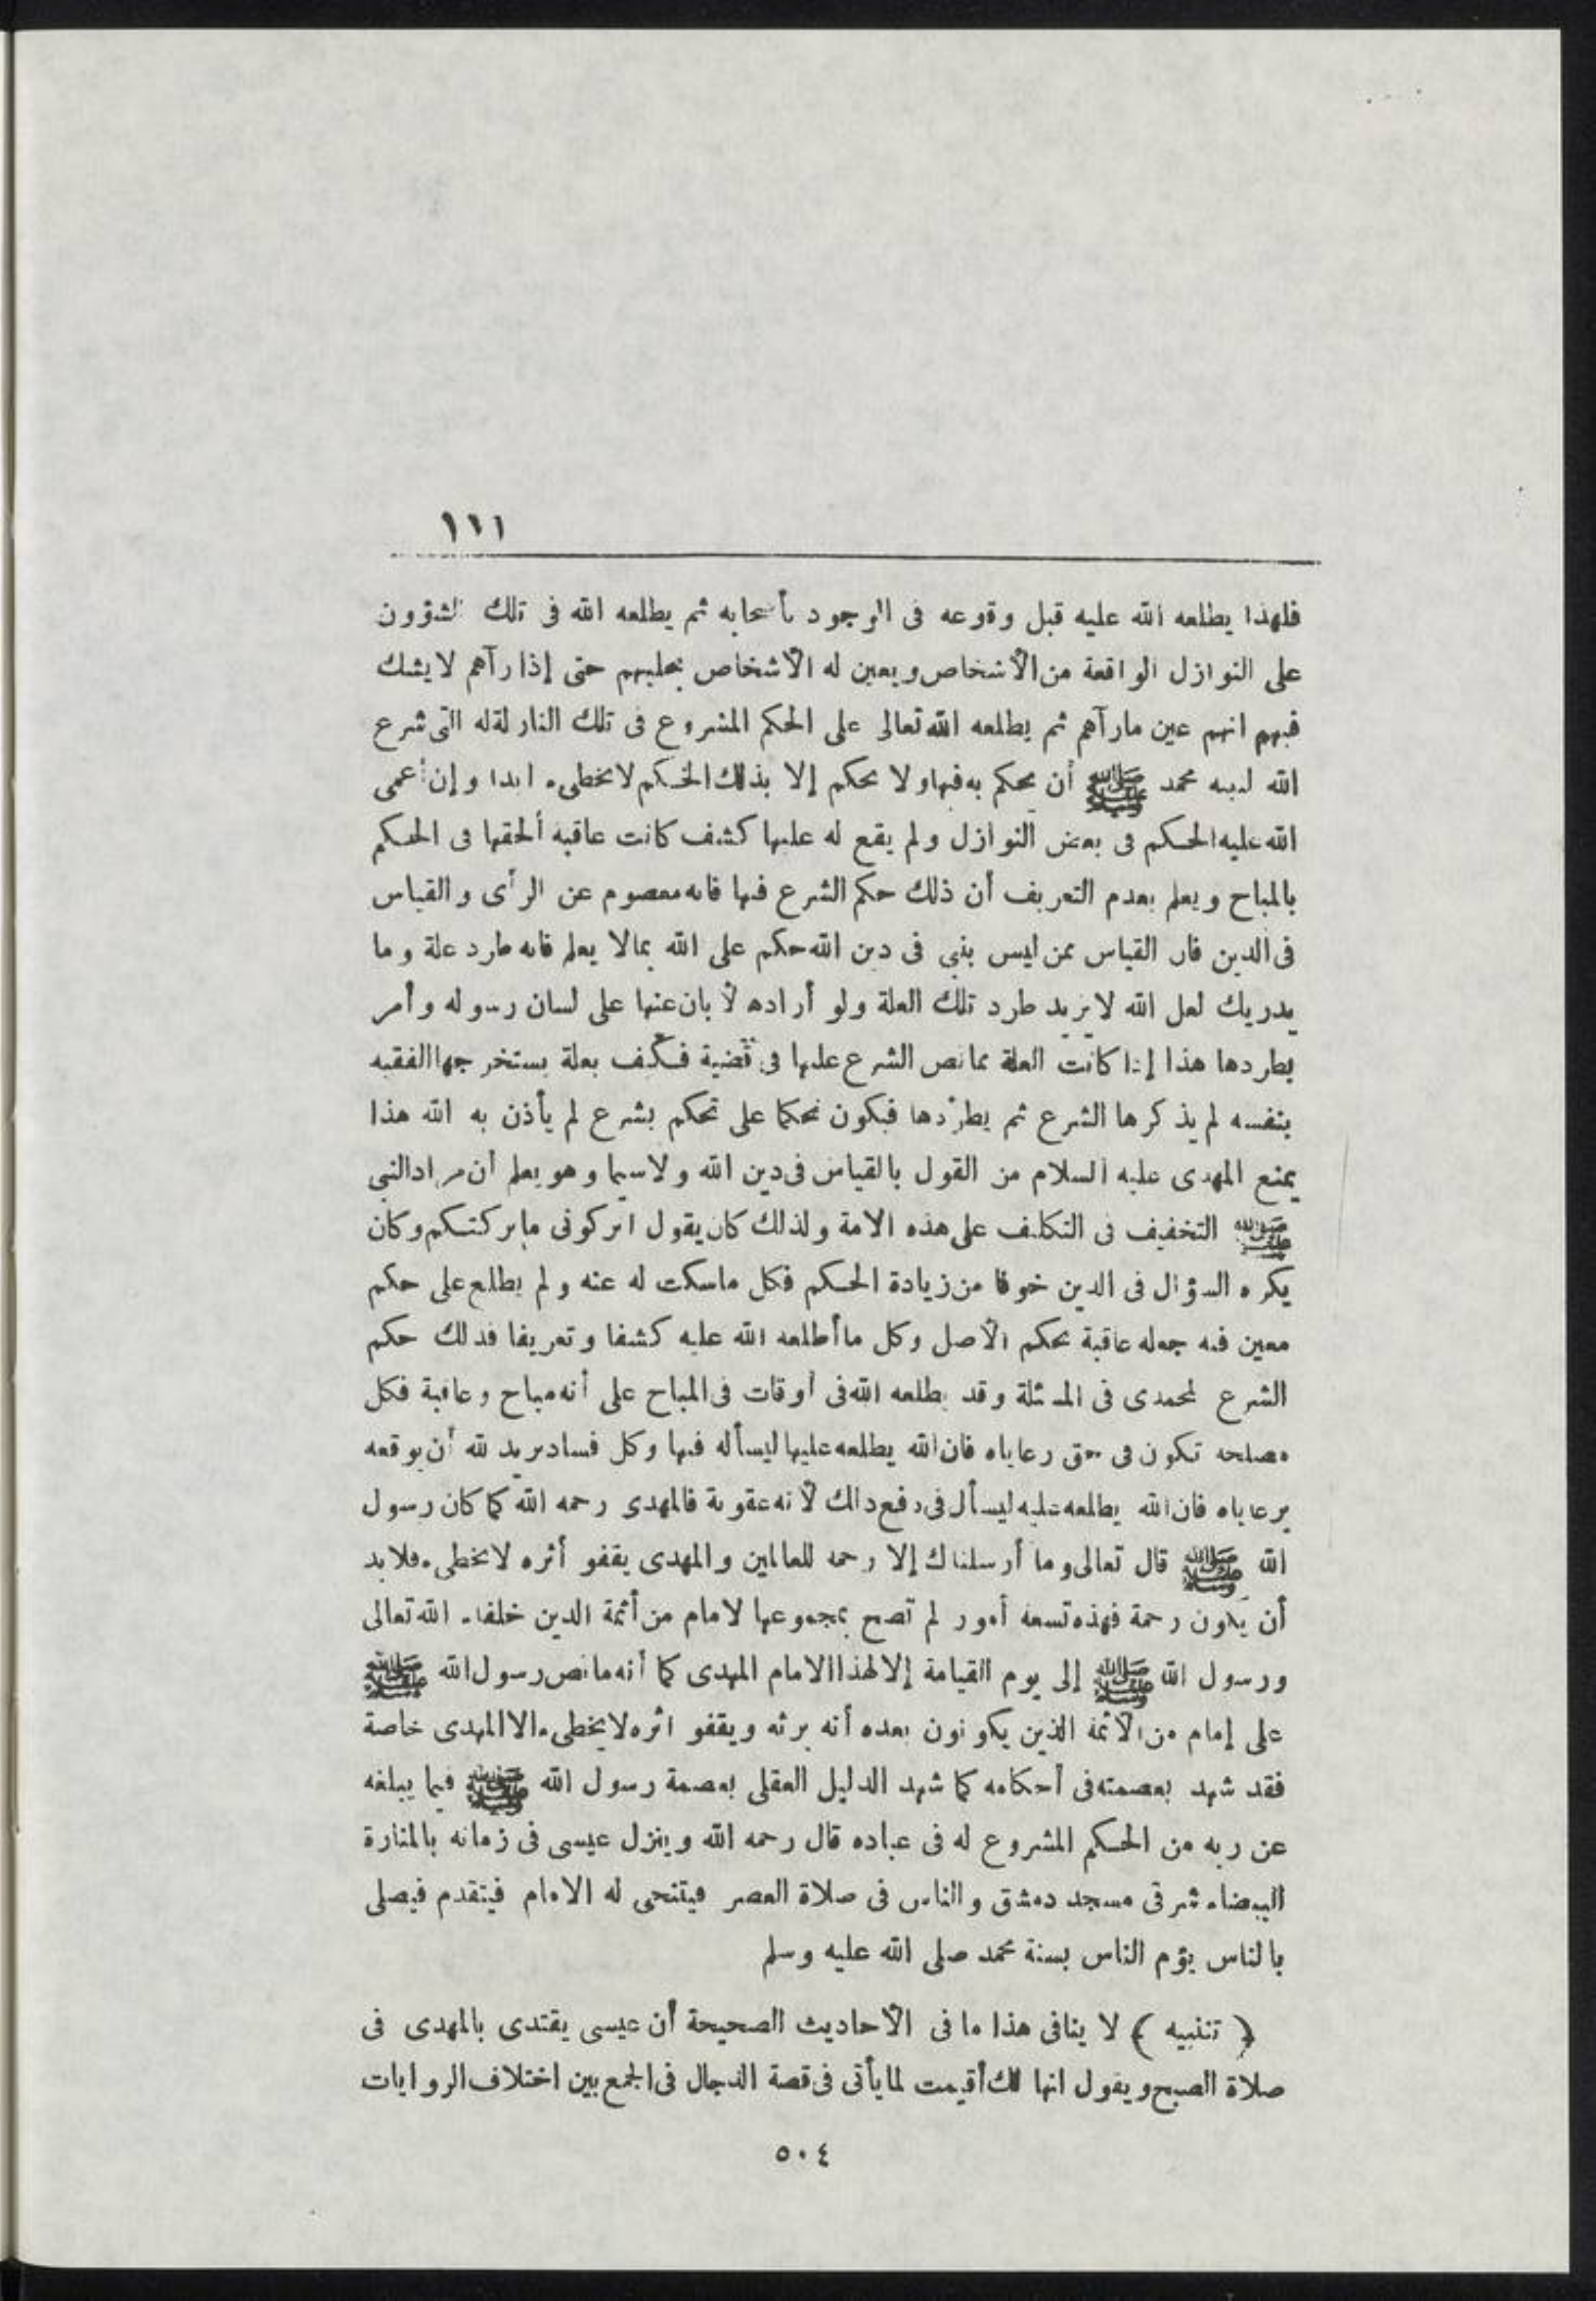 ١١١
فلهذا يطلعه الله عليه قبل وقوعه فى الوجود بأصحابه ثم يطلعه الله فى تلك الشؤون
على النوازل الواقعة من الأشخاص ويعين له الأشخاص بحليهم حتى إذا رآهم لا يشك
فيهم انهم عين مارآهم ثم يطلعه الله تعالى على الحكم المشروع فى تلك النازلة التى شرع
الله لنبيه محمد ﷺ أن يحكم به فيها ولا يحكم إلا بذلك الحكم لا يخطىء ابدا وإن أعمى
الله عليه الحكم فى بعض النوازل ولم يقع له عليها كشف كانت عاقبه ألحقها فى الحكم
بالمباح ويعلم بعدم التعريف أن ذلك حكم الشرع فيها فانه معصوم عن الرأى والقياس
فى الدين فان القياس ممن ليس بنبى فى دين الله حكم على الله بمالا يعلم فانه طرد علة وما
يدريك لعل الله لا يريد طرد تلك العلة ولو أراده لأبان عنها على لسان رسوله وأمر
بطردها هذا إذا كانت العلة مما نص الشرع عليها فى قضية فكيف بعلة يستخرجها الفقيه
بنفسه لم يذكرها الشرع ثم يطردها فيكون تحكما على تحكم بشرع لم يأذن به الله هذا
يمنع المهدى عليه السلام من القول بالقياس فى دين الله ولاسيما وهو يعلم أن مراد النبى
ﷺ التخفيف فى التكليف على هذه الامة ولذلك كان يقول اتركونى ماتركتكم وكان
يكره السؤال فى الدين خوفا من زيادة الحكم فكل ماسكت له عنه ولم يطلع على حكم
معين فيه جعله عاقبة بحكم الأصل وكل ما أطلعه الله عليه كشفا وتعريفا فذلك حكم
الشرع المحمدى فى المسئلة وقد يطلعه الله فى أوقات فى المباح على أنه مباح وعاقبة فكل
مصلحه تكون فى حق رعاياه فان الله يطلعه عليها ليسأله فيها وكل فساد يريد الله أن يوقعه
برعاياه فان الله يطلعه عليه ليسأل فى دفع ذالك لأنه عقوبة فالمهدى رحمه الله كما كان رسول
الله ﷺ قال تعالى وما أرسلناك إلا رحمه للعالمين والمهدى يقفو أثره لا يخطىء فلابد
أن يكون رحمة فهذه تسعه أمور لم تصح بمجموعها لامام من أئمة الدين خلفاء الله تعالى
ورسول الله ﷺ إلى يوم القيامة إلا لهذا الامام المهدى كما أنه مانص رسول الله ﷺ
على إمام من الأئمة الذين يكونون بعده أنه يرثه ويقفو اثره لا يخطىء الا المهدى خاصة
فقد شهد بعصمته فى أحكامه كما شهد الدليل العقلى بعصمة رسول الله ﷺ فيما يبلغه
عن ربه من الحكم المشروع له فى عباده قال رحمه الله وينزل عيسى فى زمانه بالمنارة
البيضاء شرقى مسجد دمشق والناس فى صلاة العصر فيتنحى له الامام فيتقدم فيصلى
بالناس يؤم الناس بسنة محمد صلى الله عليه وسلم
﴿ تنبيه ﴾ لا ينافى هذا ما فى الأحاديث الصحيحة أن عيسى يقتدى بالمهدى فى
صلاة الصبح ويقول انها لك أقيمت لما يأتى فى قصة الدجال فى الجمع بين اختلاف الروايات
٥٠٤